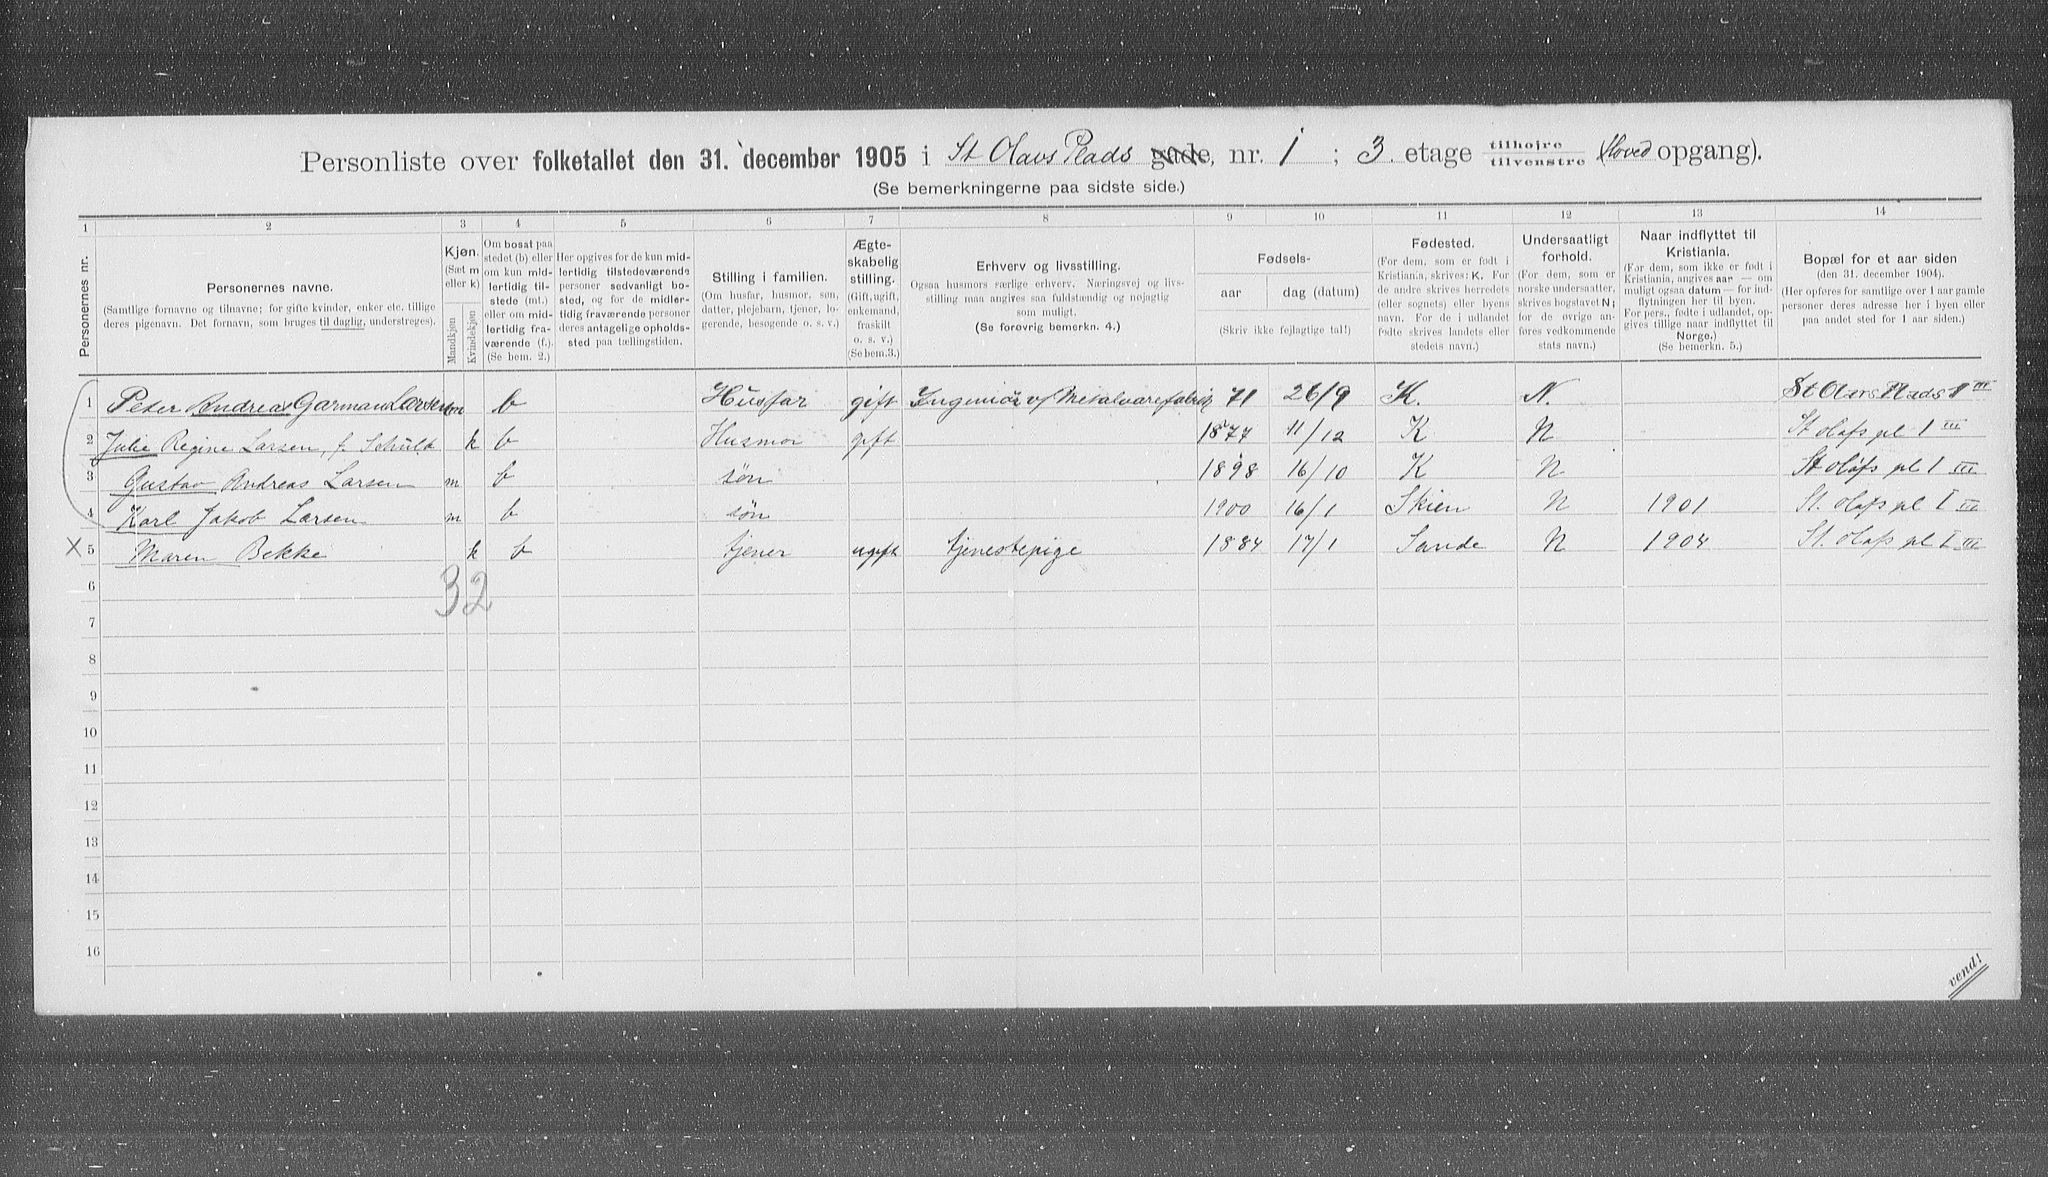 Personliste over folketallet den 31. december 1905 i St Olavs Plads gade, nr. 1 ; 3. etage tilhøjre tilvenstre Hoved opgang).
(Se bemerkningerne paa sidste side.)
1 2 3 4 5 6 7 8 9 10 11 12 13 14
Personernes nr.
Personernes navne.
(Samtlige fornavne og tilnavne; for gifte kvinder, enker etc. tillige
deres pigenavn. Det fornavn, som bruges til daglig, understreges).
Kjøn.
(Sæt m
eller k)
Mandkjøn
Kvindekjøn
Om bosat paa
stedet (b) eller
om kun mid-
lertidig til-
stede (mt.)
eller om mid-
lertidig fra-
værende (f.).
(Se bem. 2.)
Her opgives for de kun mid-
lertidig tilstedeværende
personer sedvanligt bo-
sted, og for de midler-
tidig fraværende personer
deres antagelige opholds-
sted paa tællingstiden.
Stilling i familien.
(Om husfar, husmor, søn,
datter, plejebarn, tjener, lo-
gerende, besøgende o. s. v.)
Ægte-
skabelig
stilling.
(Gift, ugift,
enkemand,
fraskilt
o. s. v.)
(Se bem.3.)
Erhverv og livsstilling.
Ogsaa husmors særlige erhverv. Næringsvej og livs-
stilling maa angives saa fuldstændig og nøjagtig
som muligt.
(Se forøvrig bemerkn. 4.)
Fødsels-
aar
dag (datum)
(Skriv ikke fejlagtige tal!)
Fødested.
(For dem, som er født i
Kristiania, skrives: K. For
de andre skrives herredets
(eller sognets) eller byens
navn. For de i udlandet
fødte skrives landets eller
stedets navn.)
Undersaatligt
forhold.
(For dem, som er
norske undersaatter,
skrives bogstavet N;
for de øvrige an-
føres vedkommende
stats navn.)
Naar indflyttet til
Kristiania.
(For dem, som ikke er født i
Kristiania, angives aar — om
muligt ogsaa datum — for ind-
flytningen her til byen.
For pers., fødte i udlandet, op-
gives tillige naar indflyttet til
Norge.)
(Se bemerkn. 5.)
Bopæl for et aar siden
(den 31. december 1904).
(Her opføres for samtlige over 1 aar gamle
personer deres adresse her i byen eller
paa andet sted for 1 aar siden.)
1 Peter Andreas Garman Larsen m b Husfar gift Ingeniør v/ Metalvarefabrik 71 26/9 K. N. St Olavs Plads 1 III
2 Julie Regine Larsen, f. Schultz k b Husmor gift 1877 11/12 K N St Olafs pl 1 III
3 Gustav Andreas Larsen m b søn 1898 16/10 K N St Olafs pl 1 III
4 Karl Jakob Larsen m b søn 1900 16/1 Skien N 1901 St. Olafs pl 1 III
X 5 Maren Bekke k b tjener ugift tjenestepige 1884 17/1 Sande N 1904 St. Olafs pl 1 III
6
32
7
8
9
10
11
12
13
14
15
16
vend!